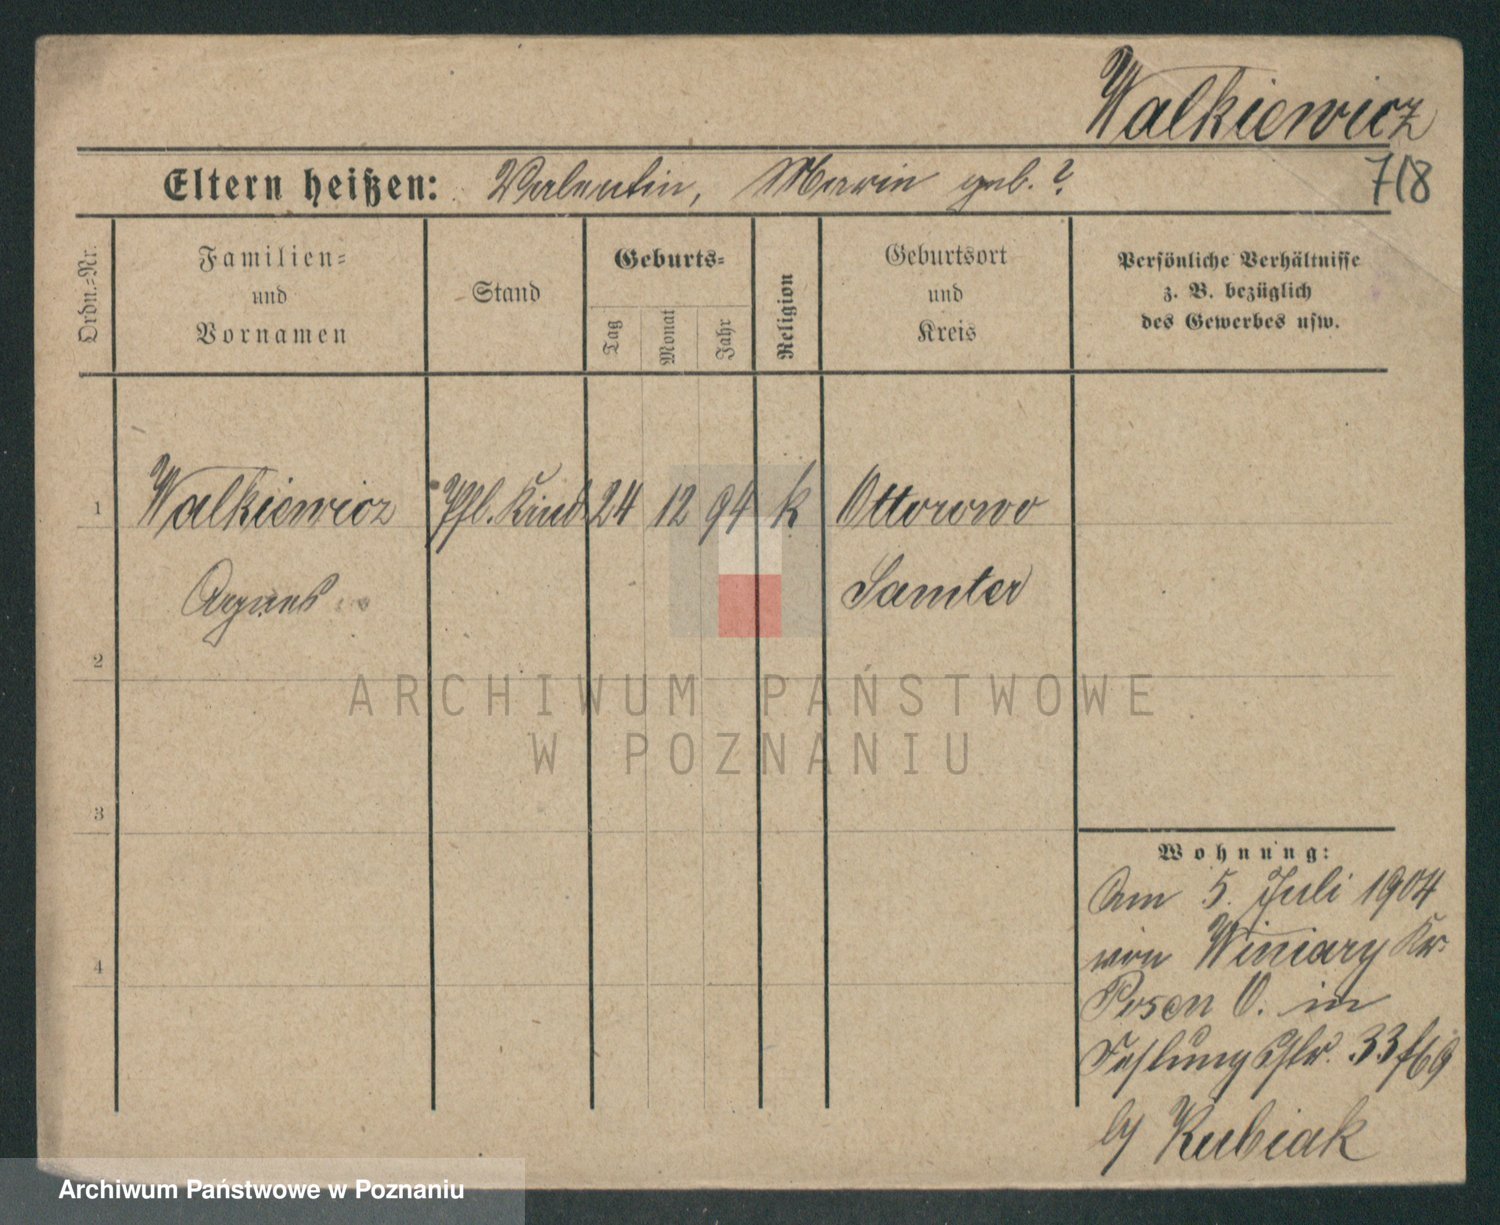 Walkiewicz
718
Eltern heißen: Valentin, Marie geb. ?
Ordn.-Nr.
Familien-
und
Vornamen
Stand
Geburts-
Tag
Monat
Jahr
Religion
Geburtsort
und
Kreis
Persönliche Verhältnisse
z. B. bezüglich
des Gewerbes usw.
1 Walkiewicz Pfl. Kind 24 12 94 k Ottorowo
Agnes Samter
2
ARCHIWUM PAŃSTWOWE
W POZNANIU
3
4
Wohnung:
Am 5. Juli 1904
von Winiary Kr.
Posen O. in
33
b/ Kubiak
Archiwum Państwowe w Poznaniu